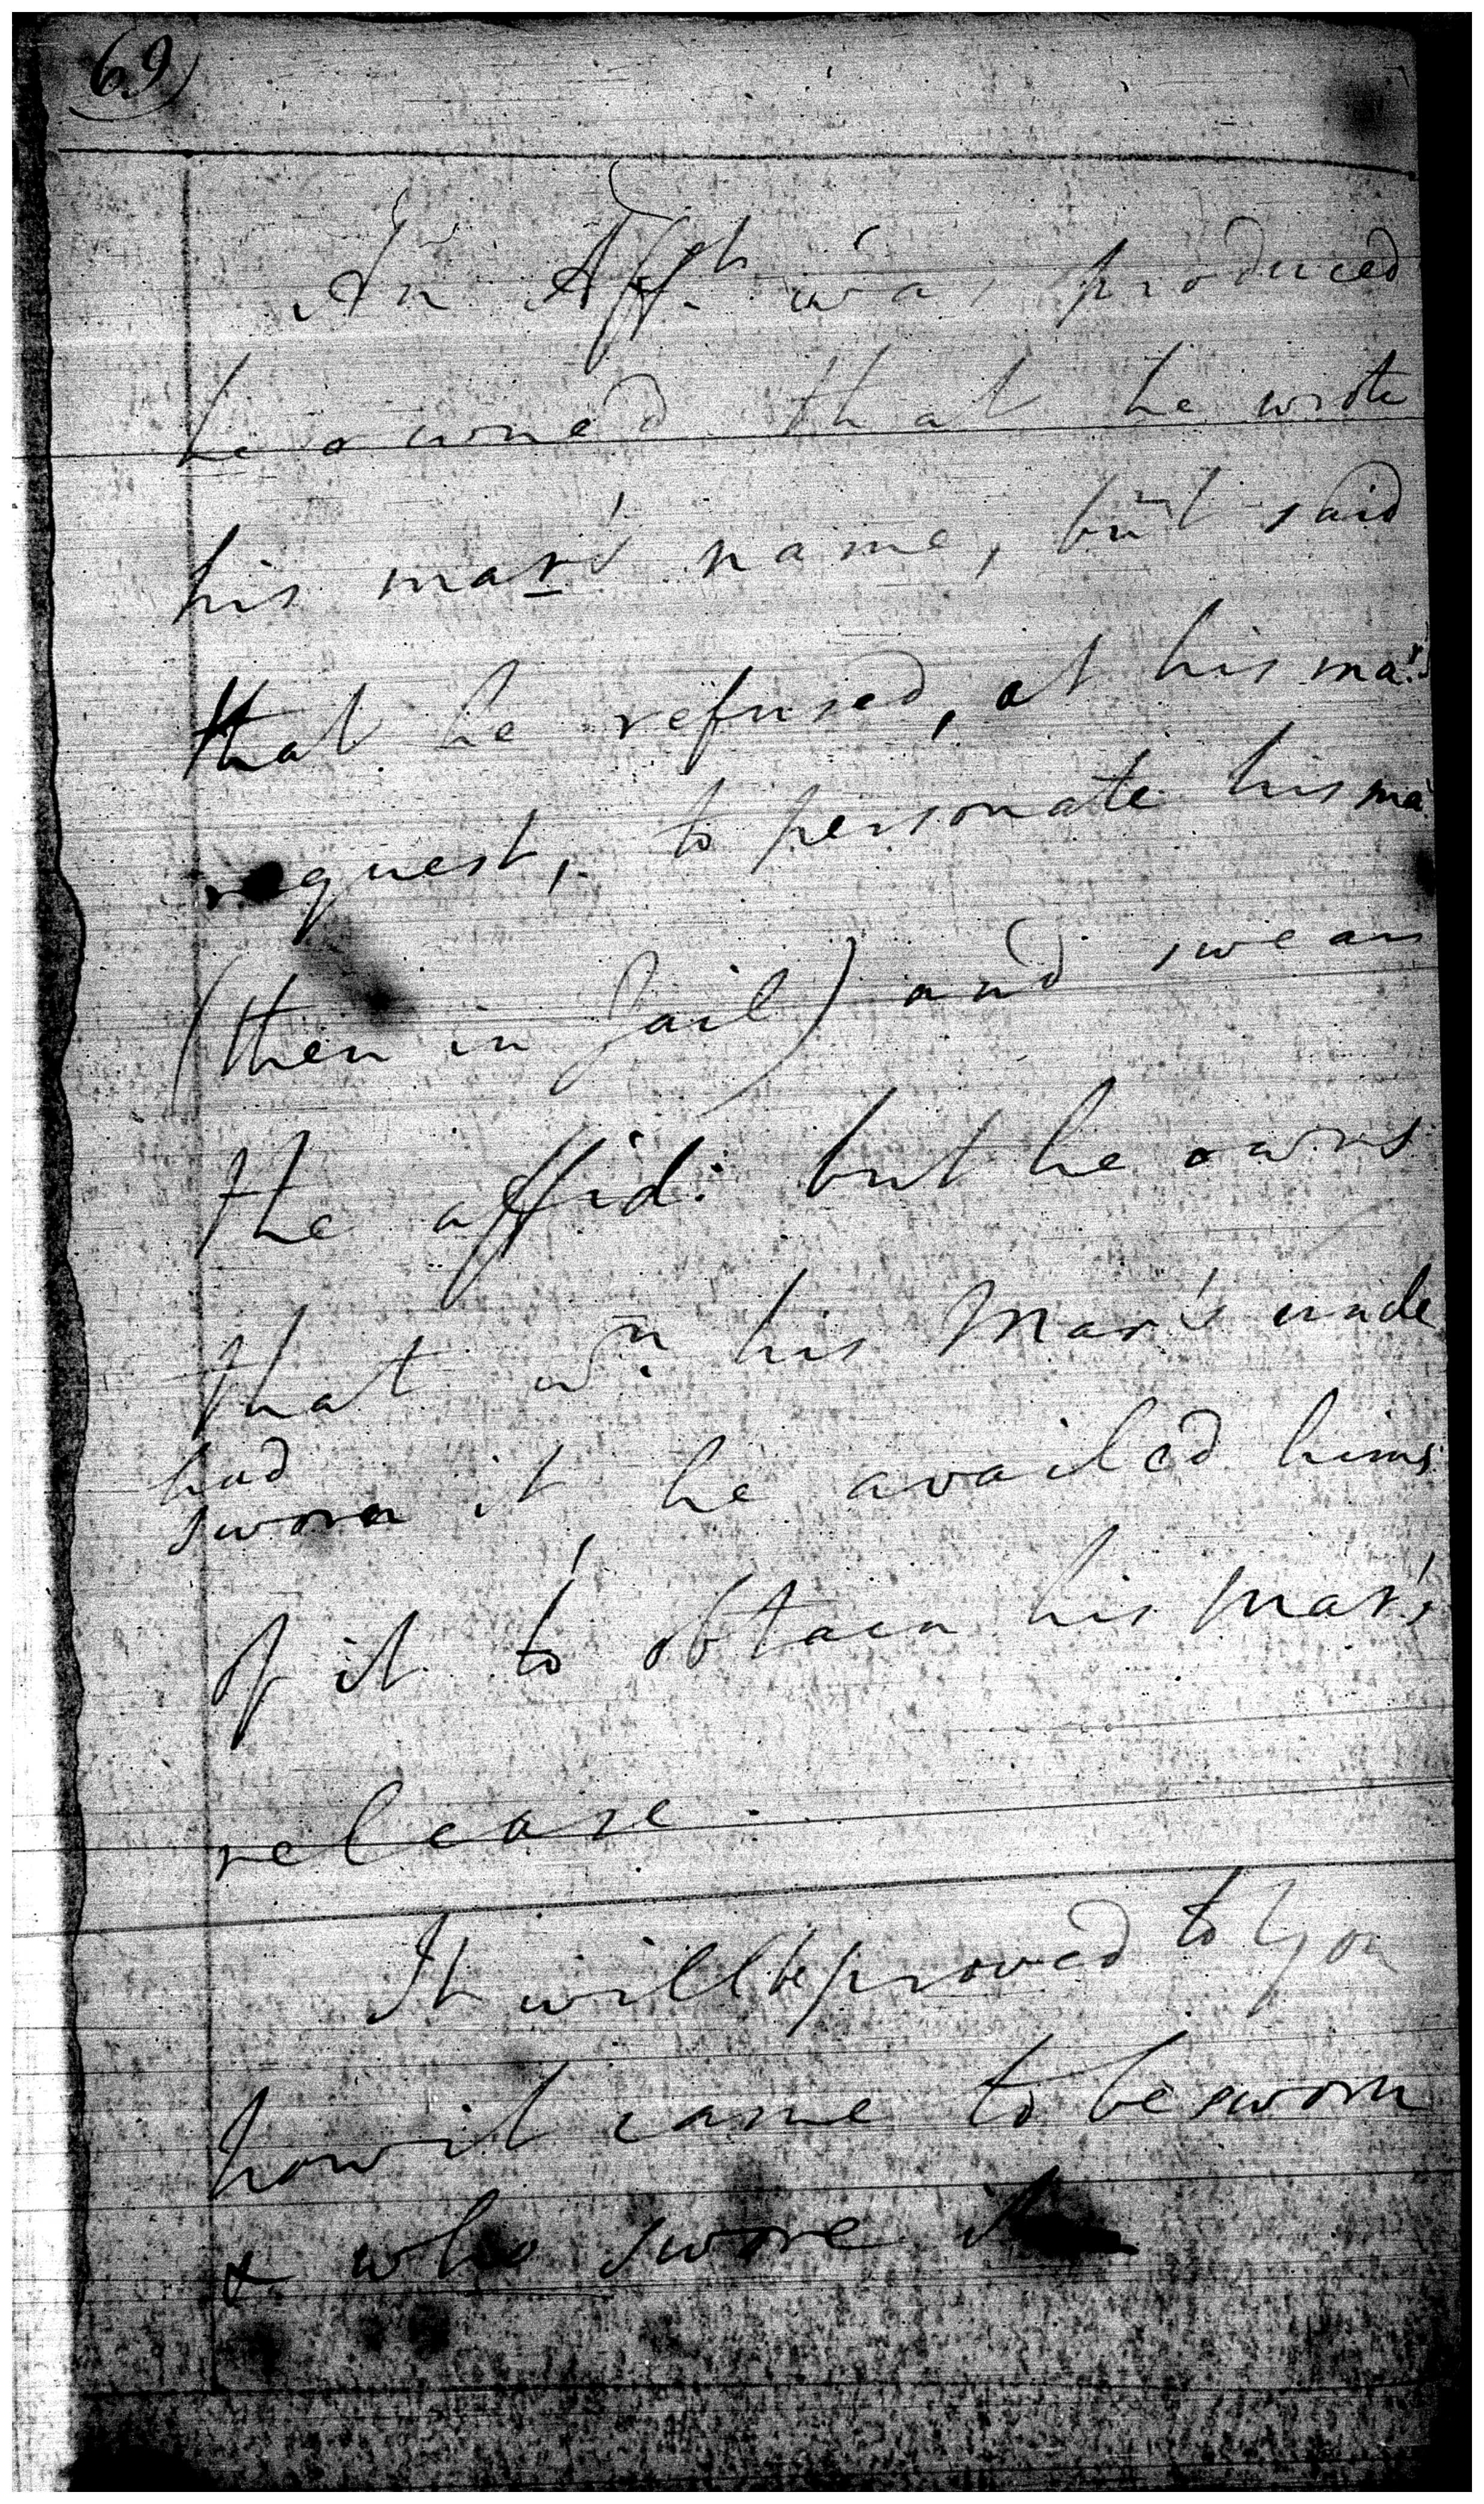 69)
An Afft. was produced
he owned that he wrote
his mar's name, but said
that he refused, at his mar's
request, to personate his ma
(then in Jail) and swear
the affid: but he owns
that wn. his Mar's uncle
had
sworn it, he availed hims
of it to obtain his Mar's
release.
It will be proved to You
how it came to be sworn
& who swore it